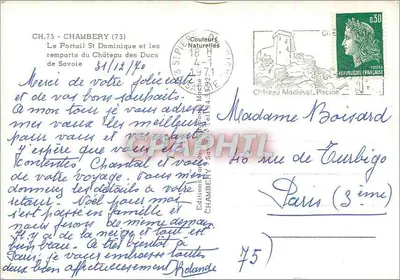 CH.75 - CHAMBERY (73)
Le Portail St Dominique et les
remparts du Château des Ducs
de Savoie
31/12/70
Merci de votre jolie carte
et de vos bons souhaits. A
mon tour je vous adresse
mes vœux les meilleurs
pour vous et
J'espère que vous
contentes, Chantal et vous
de votre voyage. Vous me
donnerez les détails à votre
retour. Noël pour moi
s'est passé en famille et
nous ferons de même demain.
Il y a de la neige et tout est
bien beau. A très bientôt à
Paris, je vous embrasse toutes
deux affectueusement Rolande
Couleurs
Naturelles
ST PIERRE
18 H
4 - 1
1971
SAVOIE
Château Médiéval, Piscine
0,30
REPUBLIQUE FRANÇAISE
POSTES
CPARTIPHIL
Madame Boisard
46 rue de Turbigo
Paris (3ème)
75)